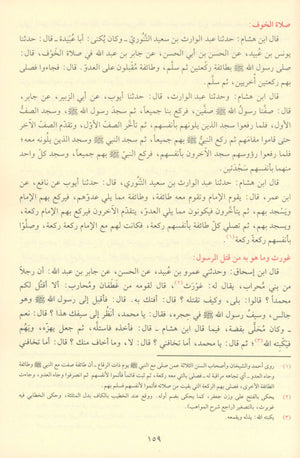 صلاة الخوف:
قال ابن هشام: حدثنا عبد الوارث بن سعيد التَّنُّوري - وكان يُكنى: أبا عُبَيدة - قال: حدثنا
يونس بن عُبيد، عن الحسن بن أبي الحسن، عن جابر بن عبد الله في صلاة الخَوْف، قال:
صلى رسول الله ﷺ بطائفة ركعتين ثم سلَّم، وطائفة مُقْبلون على العدوّ. قال: فجاءوا فصلى
بهم ركعتين أُخريين، ثم سلَّم.
قال ابن هشام: وحدثنا عبد الوارث، قال: حدثنا أيوب، عن أبي الزبير، عن جابر،
قال: صفَّنا رسولُ الله ﷺ صفَّين، فركع بنا جميعاً، ثم سجد رسول الله ﷺ، وسجد الصفُّ
الأول، فلما رفعوا سجد الذين يلونهم بأنفسهم، ثم تأخَّر الصفّ الأوّل، وتقدّم الصف الآخر
حتى قاموا مقامهم ثم ركع النبيُّ ﷺ بهم جميعاً، ثم سجد النبي ﷺ وسجد الذين يلُونه معه؛
فلما رفعوا رؤوسهم سجد الآخرون بأنفسهم، فركع النبيّ ﷺ بهم جميعاً، وسجد كلّ واحد
منهما بأنفسهم سَجْدتين.
قال ابن هشام: حدثنا عبد الوارث بن سعيد التَّنُّوري، قال: حدثنا أيوب عن نافع، عن
ابن عمر، قال: يَقوم الإمام وتقوم معه طائفة، وطائفة مما يلي عدوّهم، فيركع بهم الإمام
ويَسْجد بهم، ثم يتأخَّرون فيكونون مما يلي العدوّ، يتقدّم الآخرون فيركع بهم الإمام ركعة،
ويسجد بهم، ثم تصلي كل طائفة بأنفسهم ركعة، فكانت لهم مع الإمام ركعة ركعة، وصلَّوْا
بأنفسهم ركعةً ركعة(١).
غورث وما هو به من قتل الرسول:
قال ابن إسحاق: وحدثني عمرو بن عُبيد، عن الحسن، عن جابر بن عبد الله: أن رجلاً
من بني مُحارب، يقال له: غَوْرَث(٢)، قال لقومه من غَطَفان ومُحارب: ألا أقتُل لكم
محمداً؟ قالوا: بلى، وكيف تقتله؟ قال: أفتك به. قال: فأقبل إلى رسول الله ﷺ وهو
جالس، وسيفُ رسول الله ﷺ في حِجره، فقال: يا محمد، أنظُر إلى سيفك هذا؟ قال: نعم
- وكان مُحَلًّى بفِضة، فيما قال ابن هشام - قال: فأخذه فاستلَّه، ثم جعل يهزّه، ويَهُمّ
فيَكْبِته الله(٣)؛ ثم قال: يا محمد، أما تخافني؟ قال: لا، وما أخاف منك؟ قال: أما تخافني
(١) روى أحمد والشيخان وأصحاب السنن الثلاثة عمن صلى مع النبي ﷺ يوم ذات الرقاع - أن طائفة صفت مع النبي ﷺ وطائفة
وجاه العدو - أي تجاهه مراقبة له - فصلى بالتي معه ركعة، ثم ثبت قائماً فأتموا لأنفسهم ثم انصرفوا وجاه العدو، وجاءت
الطائفة الأخرى، فصلى بهم الركعة التي بقيت من صلاته فأتموا لأنفسهم فسلم بهم.
(٢) يحكى بالفتح على وزن جعفر، كما يحكى بضم أوله. ووقع عند الخطيب بالكاف بدل المثلثة، وحكى الخطابي فيه
غويرث، بالتصغير (راجع شرح المواهب).
(٣) يكبته الله: يذله ويقمعه.
١٥٩